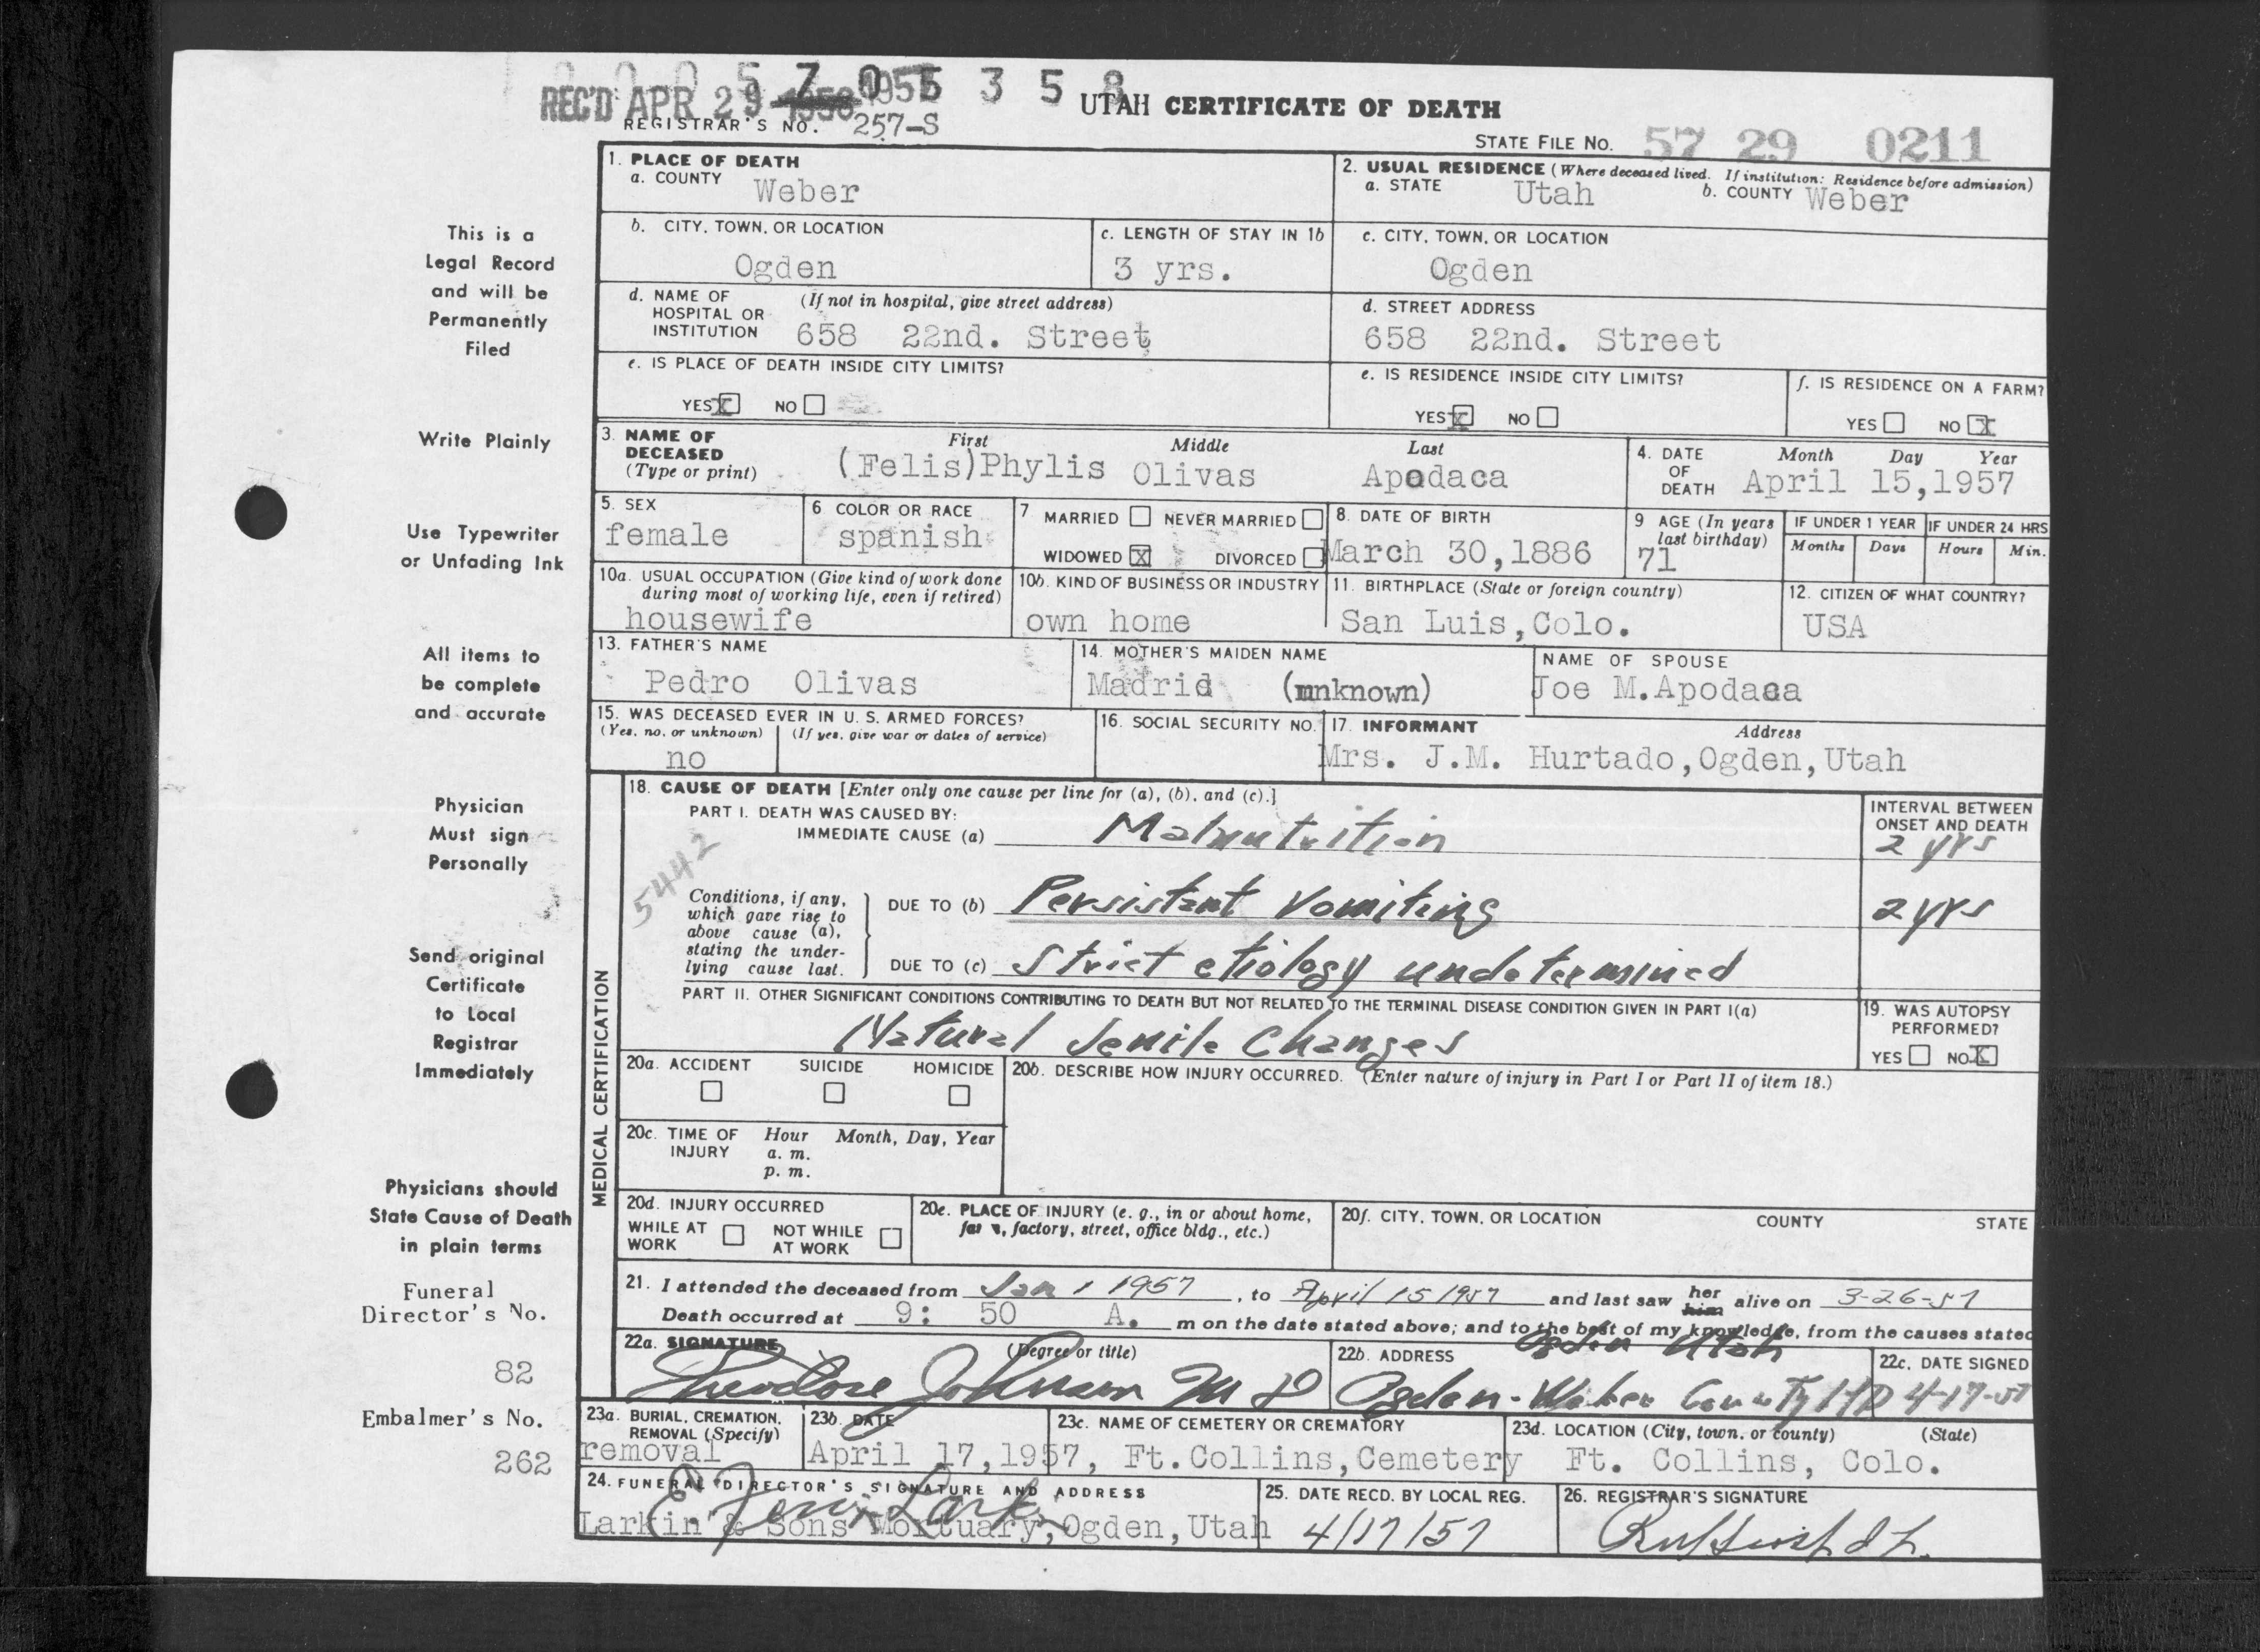 REC'D APR 29 1957 0 5 3 5 8
UTAH CERTIFICATE OF DEATH
REGISTRAR'S NO. 257-S
STATE FILE NO. 57 29 0211
1. PLACE OF DEATH
a. COUNTY Weber
2. USUAL RESIDENCE (Where deceased lived. If institution: Residence before admission)
a. STATE Utah b. COUNTY Weber
b. CITY, TOWN, OR LOCATION
Ogden
c. LENGTH OF STAY IN 1b
3 yrs.
c. CITY, TOWN, OR LOCATION
Ogden
d. NAME OF HOSPITAL OR INSTITUTION (If not in hospital, give street address)
658 22nd. Street
d. STREET ADDRESS
658 22nd. Street
e. IS PLACE OF DEATH INSIDE CITY LIMITS?
YES X NO
e. IS RESIDENCE INSIDE CITY LIMITS?
YES X NO
f. IS RESIDENCE ON A FARM?
YES NO X
3. NAME OF DECEASED (Type or print)
First Middle Last
(Felis)Phylis Olivas Apodaca
4. DATE OF DEATH
Month Day Year
April 15,1957
5. SEX
female
6 COLOR OR RACE
spanish
7 MARRIED NEVER MARRIED
WIDOWED X DIVORCED
8. DATE OF BIRTH
March 30,1886
9 AGE (In years last birthday)
71
IF UNDER 1 YEAR
Months Days
IF UNDER 24 HRS
Hours Min.
10a. USUAL OCCUPATION (Give kind of work done during most of working life, even if retired)
housewife
10b. KIND OF BUSINESS OR INDUSTRY
own home
11. BIRTHPLACE (State or foreign country)
San Luis,Colo.
12. CITIZEN OF WHAT COUNTRY?
USA
13. FATHER'S NAME
Pedro Olivas
14. MOTHER'S MAIDEN NAME
Madrid (unknown)
NAME OF SPOUSE
Joe M.Apodaca
15. WAS DECEASED EVER IN U. S. ARMED FORCES?
(Yes, no, or unknown) (If yes, give war or dates of service)
no
16. SOCIAL SECURITY NO.
17. INFORMANT Address
Mrs. J.M. Hurtado,Ogden,Utah
MEDICAL CERTIFICATION
18. CAUSE OF DEATH [Enter only one cause per line for (a), (b), and (c).]
PART I. DEATH WAS CAUSED BY:
IMMEDIATE CAUSE (a) Malnutrition
INTERVAL BETWEEN ONSET AND DEATH
2 yrs
5442
Conditions, if any, which gave rise to above cause (a), stating the underlying cause last.
DUE TO (b) Persistant Vomiting
2 yrs
DUE TO (c) Strict etiology undetermined
PART II. OTHER SIGNIFICANT CONDITIONS CONTRIBUTING TO DEATH BUT NOT RELATED TO THE TERMINAL DISEASE CONDITION GIVEN IN PART I(a)
Natural Senile Changes
19. WAS AUTOPSY PERFORMED?
YES NO X
20a. ACCIDENT SUICIDE HOMICIDE
20b. DESCRIBE HOW INJURY OCCURRED. (Enter nature of injury in Part I or Part II of item 18.)
20c. TIME OF INJURY Hour Month, Day, Year
a. m.
p. m.
20d. INJURY OCCURRED
WHILE AT WORK NOT WHILE AT WORK
20e. PLACE OF INJURY (e. g., in or about home, farm, factory, street, office bldg., etc.)
20f. CITY, TOWN, OR LOCATION COUNTY STATE
21. I attended the deceased from Jan 1 1957, to April 15 1957 and last saw her him alive on 3-26-57
Death occurred at 9: 50 A. m on the date stated above; and to the best of my knowledge, from the causes stated
22a. SIGNATURE (Degree or title)
Theodore Johnson M D
22b. ADDRESS
Ogden Utah
Ogden-Weber County HD
22c. DATE SIGNED
4-17-57
23a. BURIAL, CREMATION, REMOVAL (Specify)
removal
23b. DATE
April 17,1957,
23c. NAME OF CEMETERY OR CREMATORY
Ft.Collins,Cemetery
23d. LOCATION (City, town, or county) (State)
Ft. Collins, Colo.
24. FUNERAL DIRECTOR'S SIGNATURE AND ADDRESS
Larkin & Sons Mortuary,Ogden,Utah
25. DATE RECD. BY LOCAL REG.
4/17/57
26. REGISTRAR'S SIGNATURE
This is a
Legal Record
and will be
Permanently
Filed
Write Plainly
Use Typewriter
or Unfading Ink
All items to
be complete
and accurate
Physician
Must sign
Personally
Send original
Certificate
to Local
Registrar
Immediately
Physicians should
State Cause of Death
in plain terms
Funeral
Director's No.
82
Embalmer's No.
262